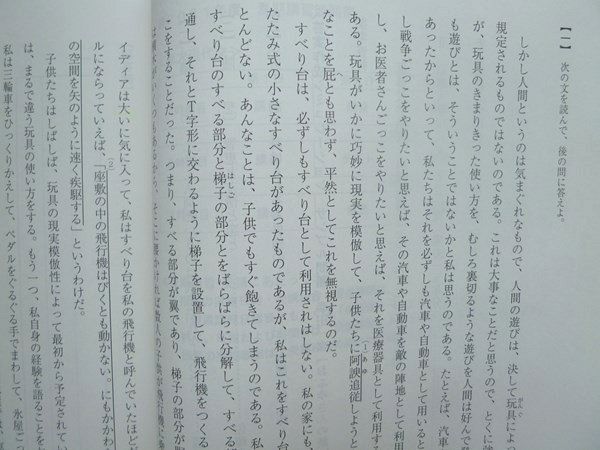 【一】 次の文を読んで、後の問に答えよ。
しかし人間というのは気まぐれなもので、人間の遊びは、決して玩具によっ
規定されるものではないのである。これは大事なことだと思うので、とくに強
が、玩具のきまりきった使い方を、むしろ裏切るような遊びを人間は好んで発
も遊びとは、そういうことではないかと私は思うのである。たとえば、汽車
あったからといって、私たちはそれを必ずしも汽車や自動車として用いると
し戦争ごっこをやりたいと思えば、その汽車や自動車を敵の陣地として利用
し、お医者さんごっこをやりたいと思えば、それを医療器具として利用する
ある。玩具がいかに巧妙に現実を模倣して、子供たちに阿諛追従しようと
なことを屁とも思わず、平然としてこれを無視するのだ。
すべり台は、必ずしもすべり台として利用されはしない。私の家にも、
たたみ式の小さなすべり台があったものであるが、私はこれをすべり台
とんどない。あんなことは、子供でもすぐ飽きてしまうのである。私
すべり台のすべる部分と梯子の部分とをばらばらに分解して、すべる
通し、それとT字形に交わるように梯子を設置して、飛行機をつくる
こをすることだった。つまり、すべる部分が翼であり、梯子の部分が
そこに腰かければ数人の子供が飛行機に
イディアは大いに気に入って、私はすべり台を私の飛行機と呼んでいたほどだ
ルにならっていえば、「座敷の中の飛行機はぴくとも動かない。にもかかわ
の空間を矢のように速く疾駆する」というわけだ。
子供たちはしばしば、玩具の現実模倣性によって最初から予定されてい
は、まるで違う玩具の使い方をする。もう一つ、私自身の経験を語ることを
私は三輪車をひっくりかえして、ペダルをぐるぐる手でまわして、氷屋ご